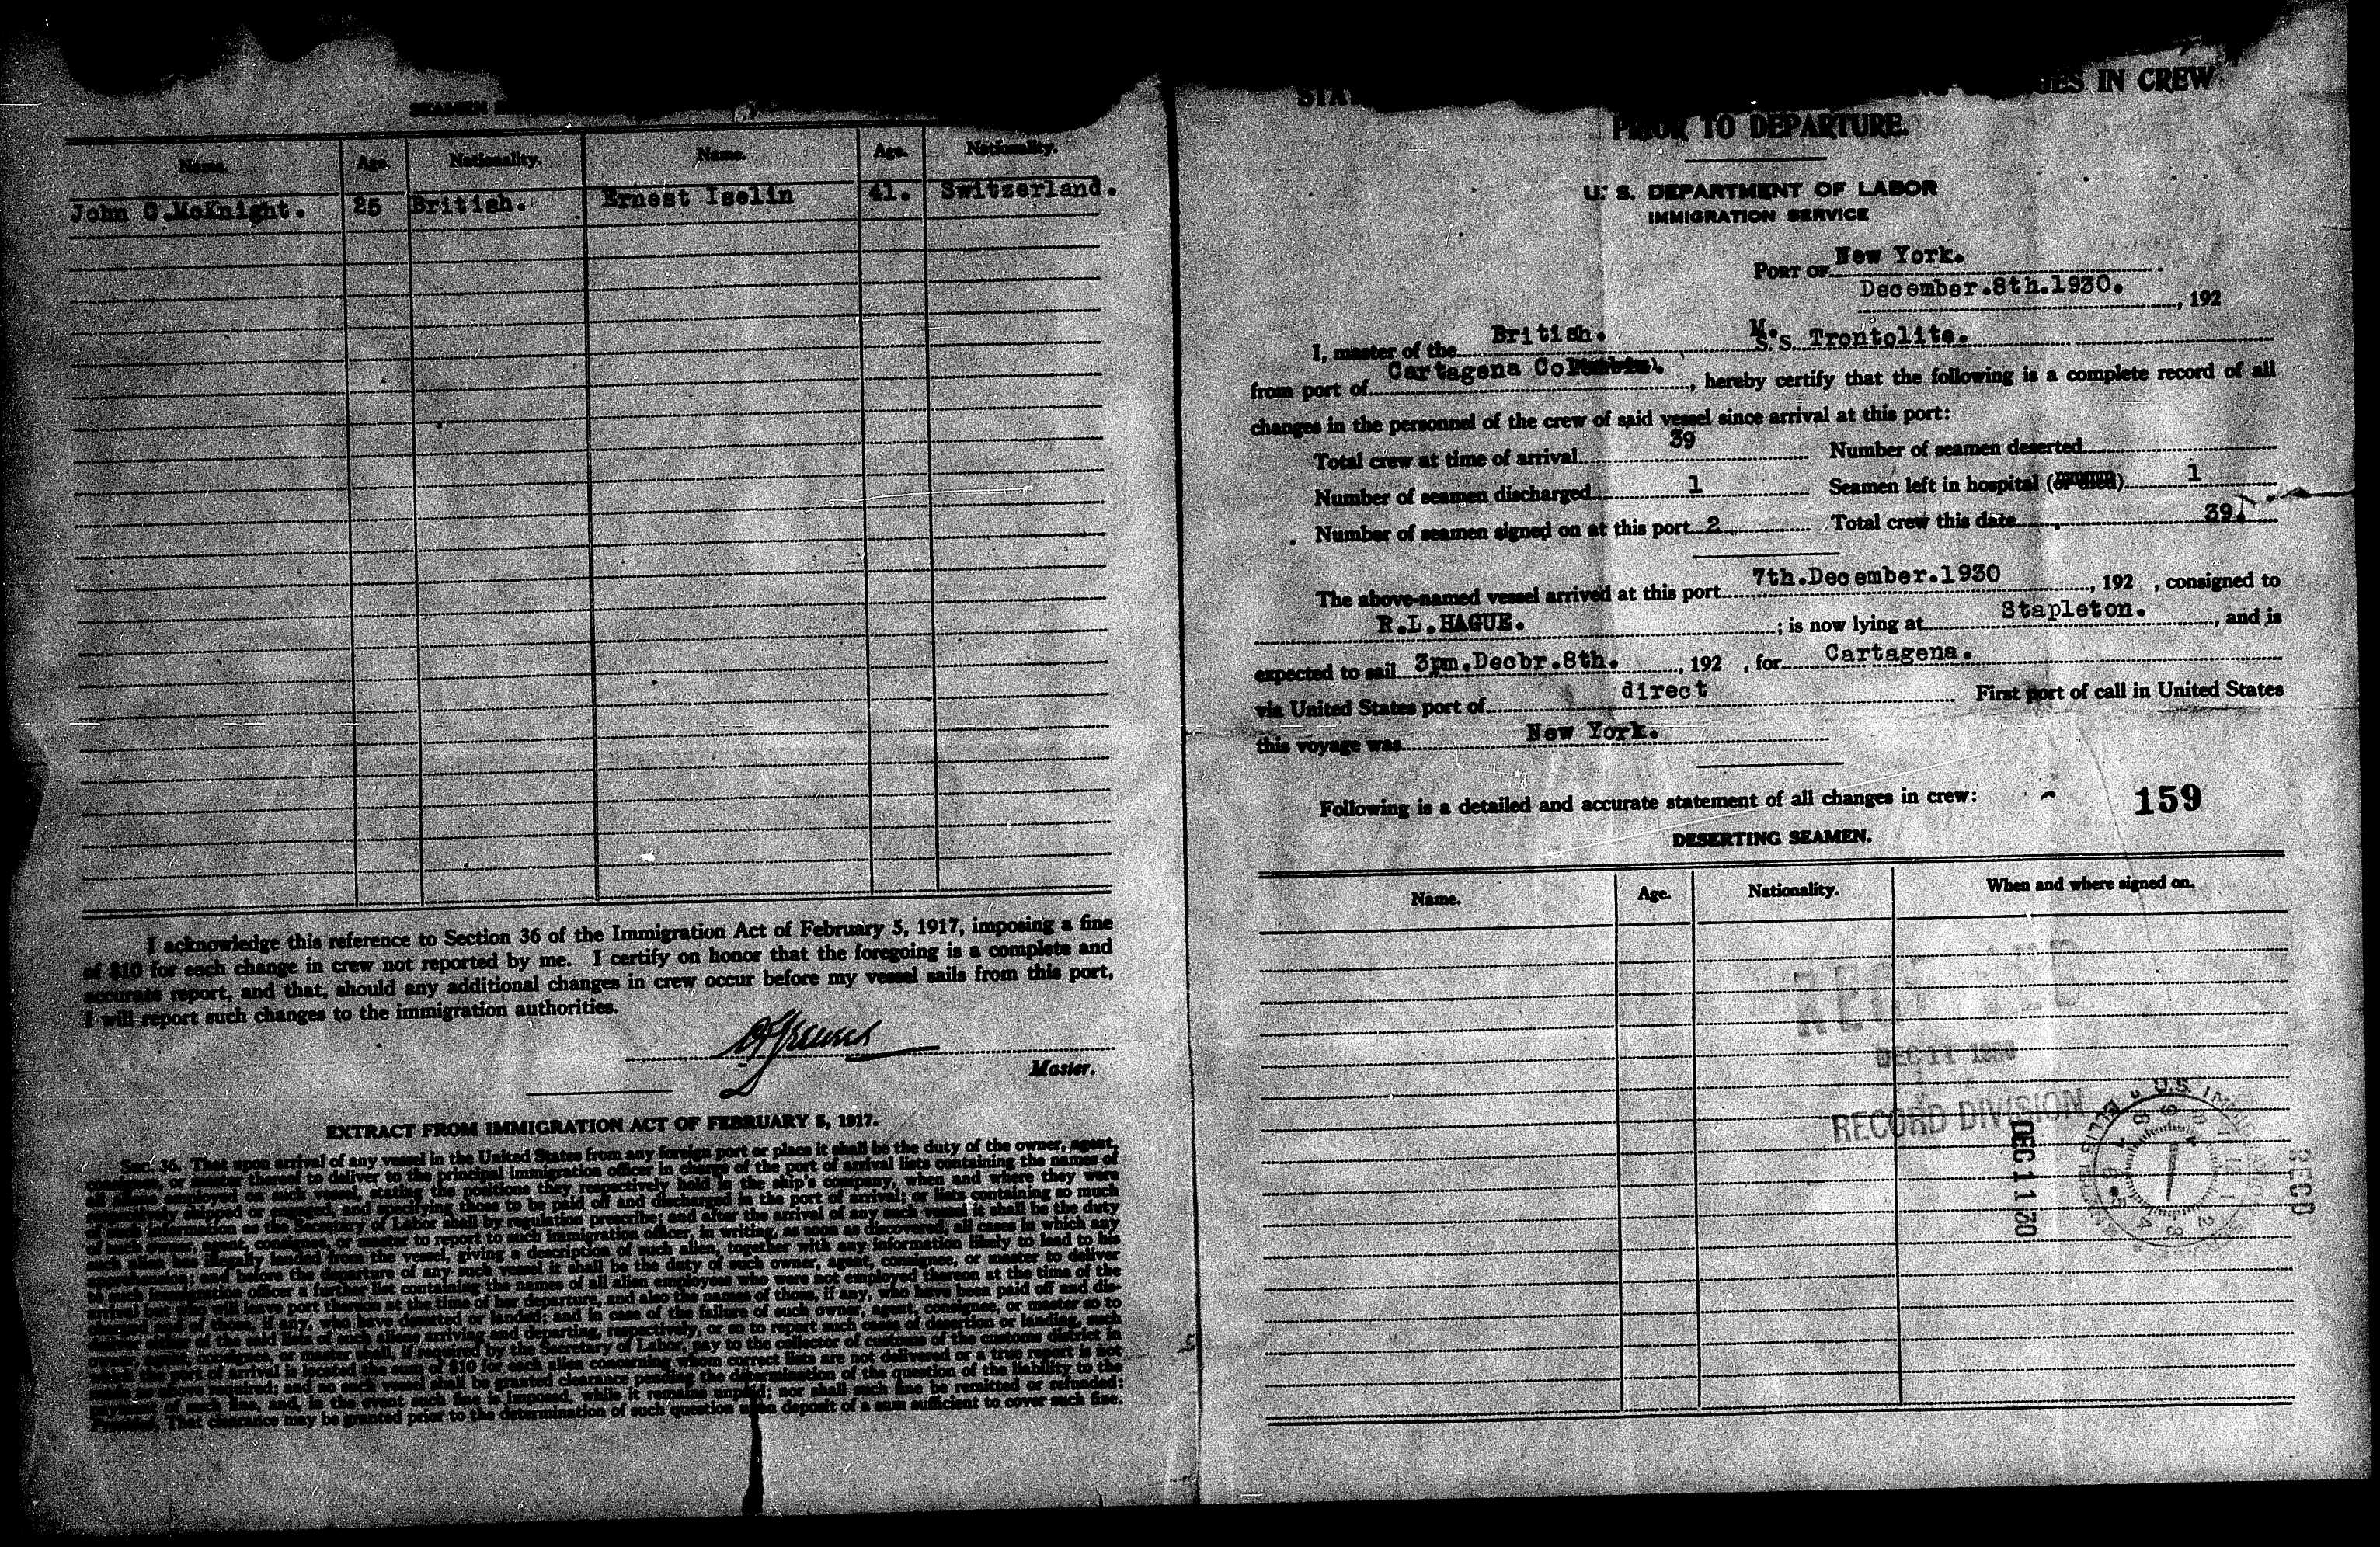 SEAMEN
Name. Age. Nationality. Name. Age. Nationality.
John C.McKnight. 25 British. Ernest Iselin 41. Switzerland.
I acknowledge this reference to Section 36 of the Immigration Act of February 5, 1917, imposing a fine
of $10 for each change in crew not reported by me. I certify on honor that the foregoing is a complete and
accurate report, and that, should any additional changes in crew occur before my vessel sails from this port,
I will report such changes to the immigration authorities.
Master.
EXTRACT FROM IMMIGRATION ACT OF FEBRUARY 5, 1917.
Sec. 36. That upon arrival of any vessel in the United States from any foreign port or place it shall be the duty of the owner, agent,
consignee, or master thereof to deliver to the principal immigration officer in charge of the port of arrival lists containing the names of
all aliens employed on such vessel, stating the positions they respectively hold in the ship's company, when and where they were
respectively shipped or engaged, and specifying those to be paid off and discharged in the port of arrival; or lists containing so much
of such information as the Secretary of Labor shall by regulation prescribe; and after the arrival of any such vessel it shall be the duty
of such owner, agent, consignee, or master to report to such immigration officer, in writing, as soon as discovered, all cases in which any
such alien has illegally landed from the vessel, giving a description of such alien, together with any information likely to lead to his
apprehension; and before the departure of any such vessel it shall be the duty of such owner, agent, consignee, or master to deliver
to such immigration officer a further list containing the names of all alien employees who were not employed thereon at the time of the
arrival but who will leave port thereon at the time of her departure, and also the names of those, if any, who have been paid off and dis-
charged, and of those, if any, who have deserted or landed; and in case of the failure of such owner, agent, consignee, or master so to
deliver either of the said lists of such aliens arriving and departing, respectively, or so to report such cases of desertion or landing, such
owner, agent, consignee, or master shall, if required by the Secretary of Labor, pay to the collector of customs of the customs district in
which the port of arrival is located the sum of $10 for each alien concerning whom correct lists are not delivered or a true report is not
made as above required; and no such vessel shall be granted clearance pending the determination of the question of the liability to the
payment of such fine, and, in the event such fine is imposed, while it remains unpaid; nor shall such fine be remitted or refunded:
Provided, That clearance may be granted prior to the determination of such question upon deposit of a sum sufficient to cover such fine.
IN CREW
PRIOR TO DEPARTURE.
U. S. DEPARTMENT OF LABOR
IMMIGRATION SERVICE
PORT OF New York.
December.8th.1930. , 192
I, master of the British. M.S. Trontolite.
from port of Cartagena , hereby certify that the following is a complete record of all
changes in the personnel of the crew of said vessel since arrival at this port:
Total crew at time of arrival 39 Number of seamen deserted
Number of seamen discharged 1 Seamen left in hospital (or died) 1
Number of seamen signed on at this port 2 Total crew this date 39.
The above-named vessel arrived at this port 7th.December.1930 , 192 , consigned to
R.L.HAGUE. ; is now lying at Stapleton. , and is
expected to sail 3pm.Decbr.8th. , 192 , for Cartagena.
via United States port of direct First port of call in United States
this voyage was New York.
Following is a detailed and accurate statement of all changes in crew:
159
DESERTING SEAMEN.
Name. Age. Nationality. When and where signed on.
DEC 11 1930
RECORD DIVISION
DEC 11 30
REC'D